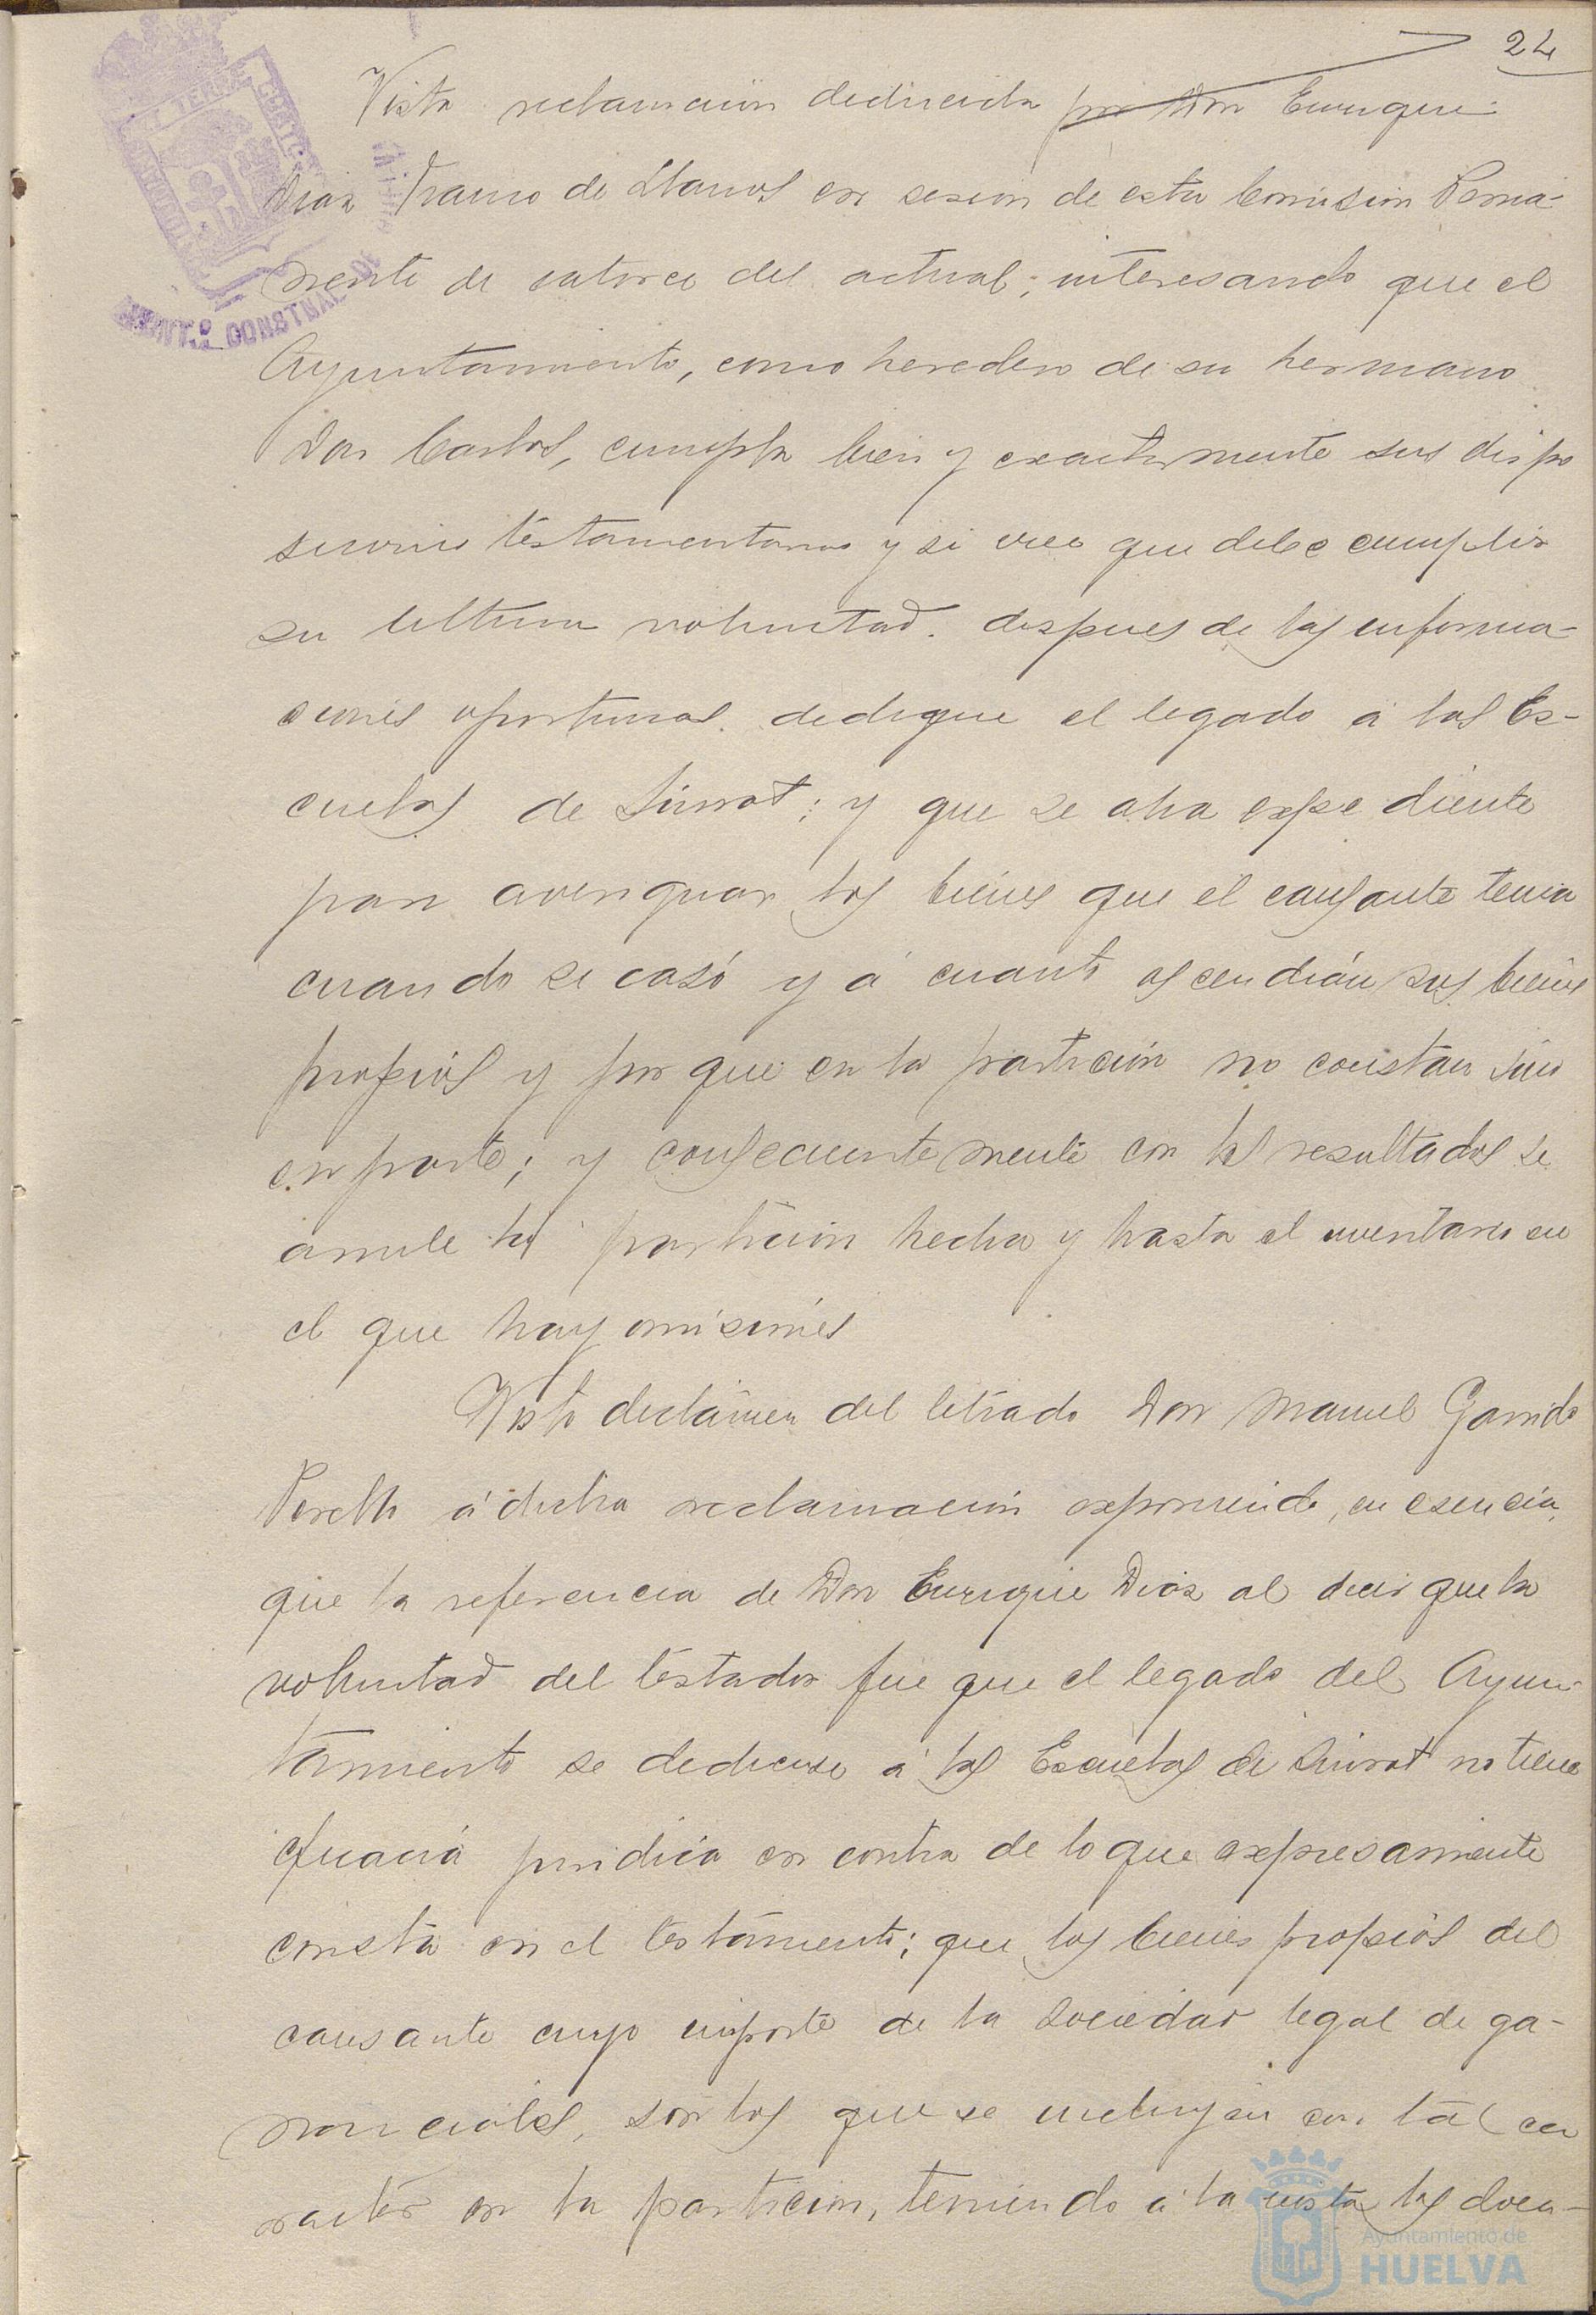 24
Vista reclamación deducida por Don Enrique
Díaz Franco de Llanos en sesión de esta Comisión Perma-
nente de catorce del actual; interesando que el
Ayuntamiento, como heredero de su hermano
Don Carlos, cumpla bien y exactamente sus dispo
siciones testamentarias y si cree que debe cumplir
su ultima voluntad. despues de las informa-
ciones oportunas. dedique el legado á las Es-
cuelas de Siurot; y que se abra expediente
para averiguar los bienes que el causante tenia
cuando se casó y á cuanto ascendían sus bienes
propios y por que en la partición no constan sino
en parte; y consecuentemente con los resultados se
anule la partición hecha y hasta el inventario en
el que hay omisiones
Visto dictámen del letrado Don Manuel Garrido
Perelló á dicha reclamación exponiendo, en esencia,
que la referencia de Don Enrique Díaz al decir que la
voluntad del testador fue que el legado del Ayun-
tamiento se dedicase á las Escuelas de Siurot no tiene
eficacia juridica en contra de lo que expresamente
consta en el testamento; que los bienes propios del
causante cuyo importe de la sociedad legal de ga-
nanciales, son los que se incluyen con tal ca
racter en la particion, teniendo á la vista los docu-
CONSTNAL
Ayuntamiento de
HUELVA